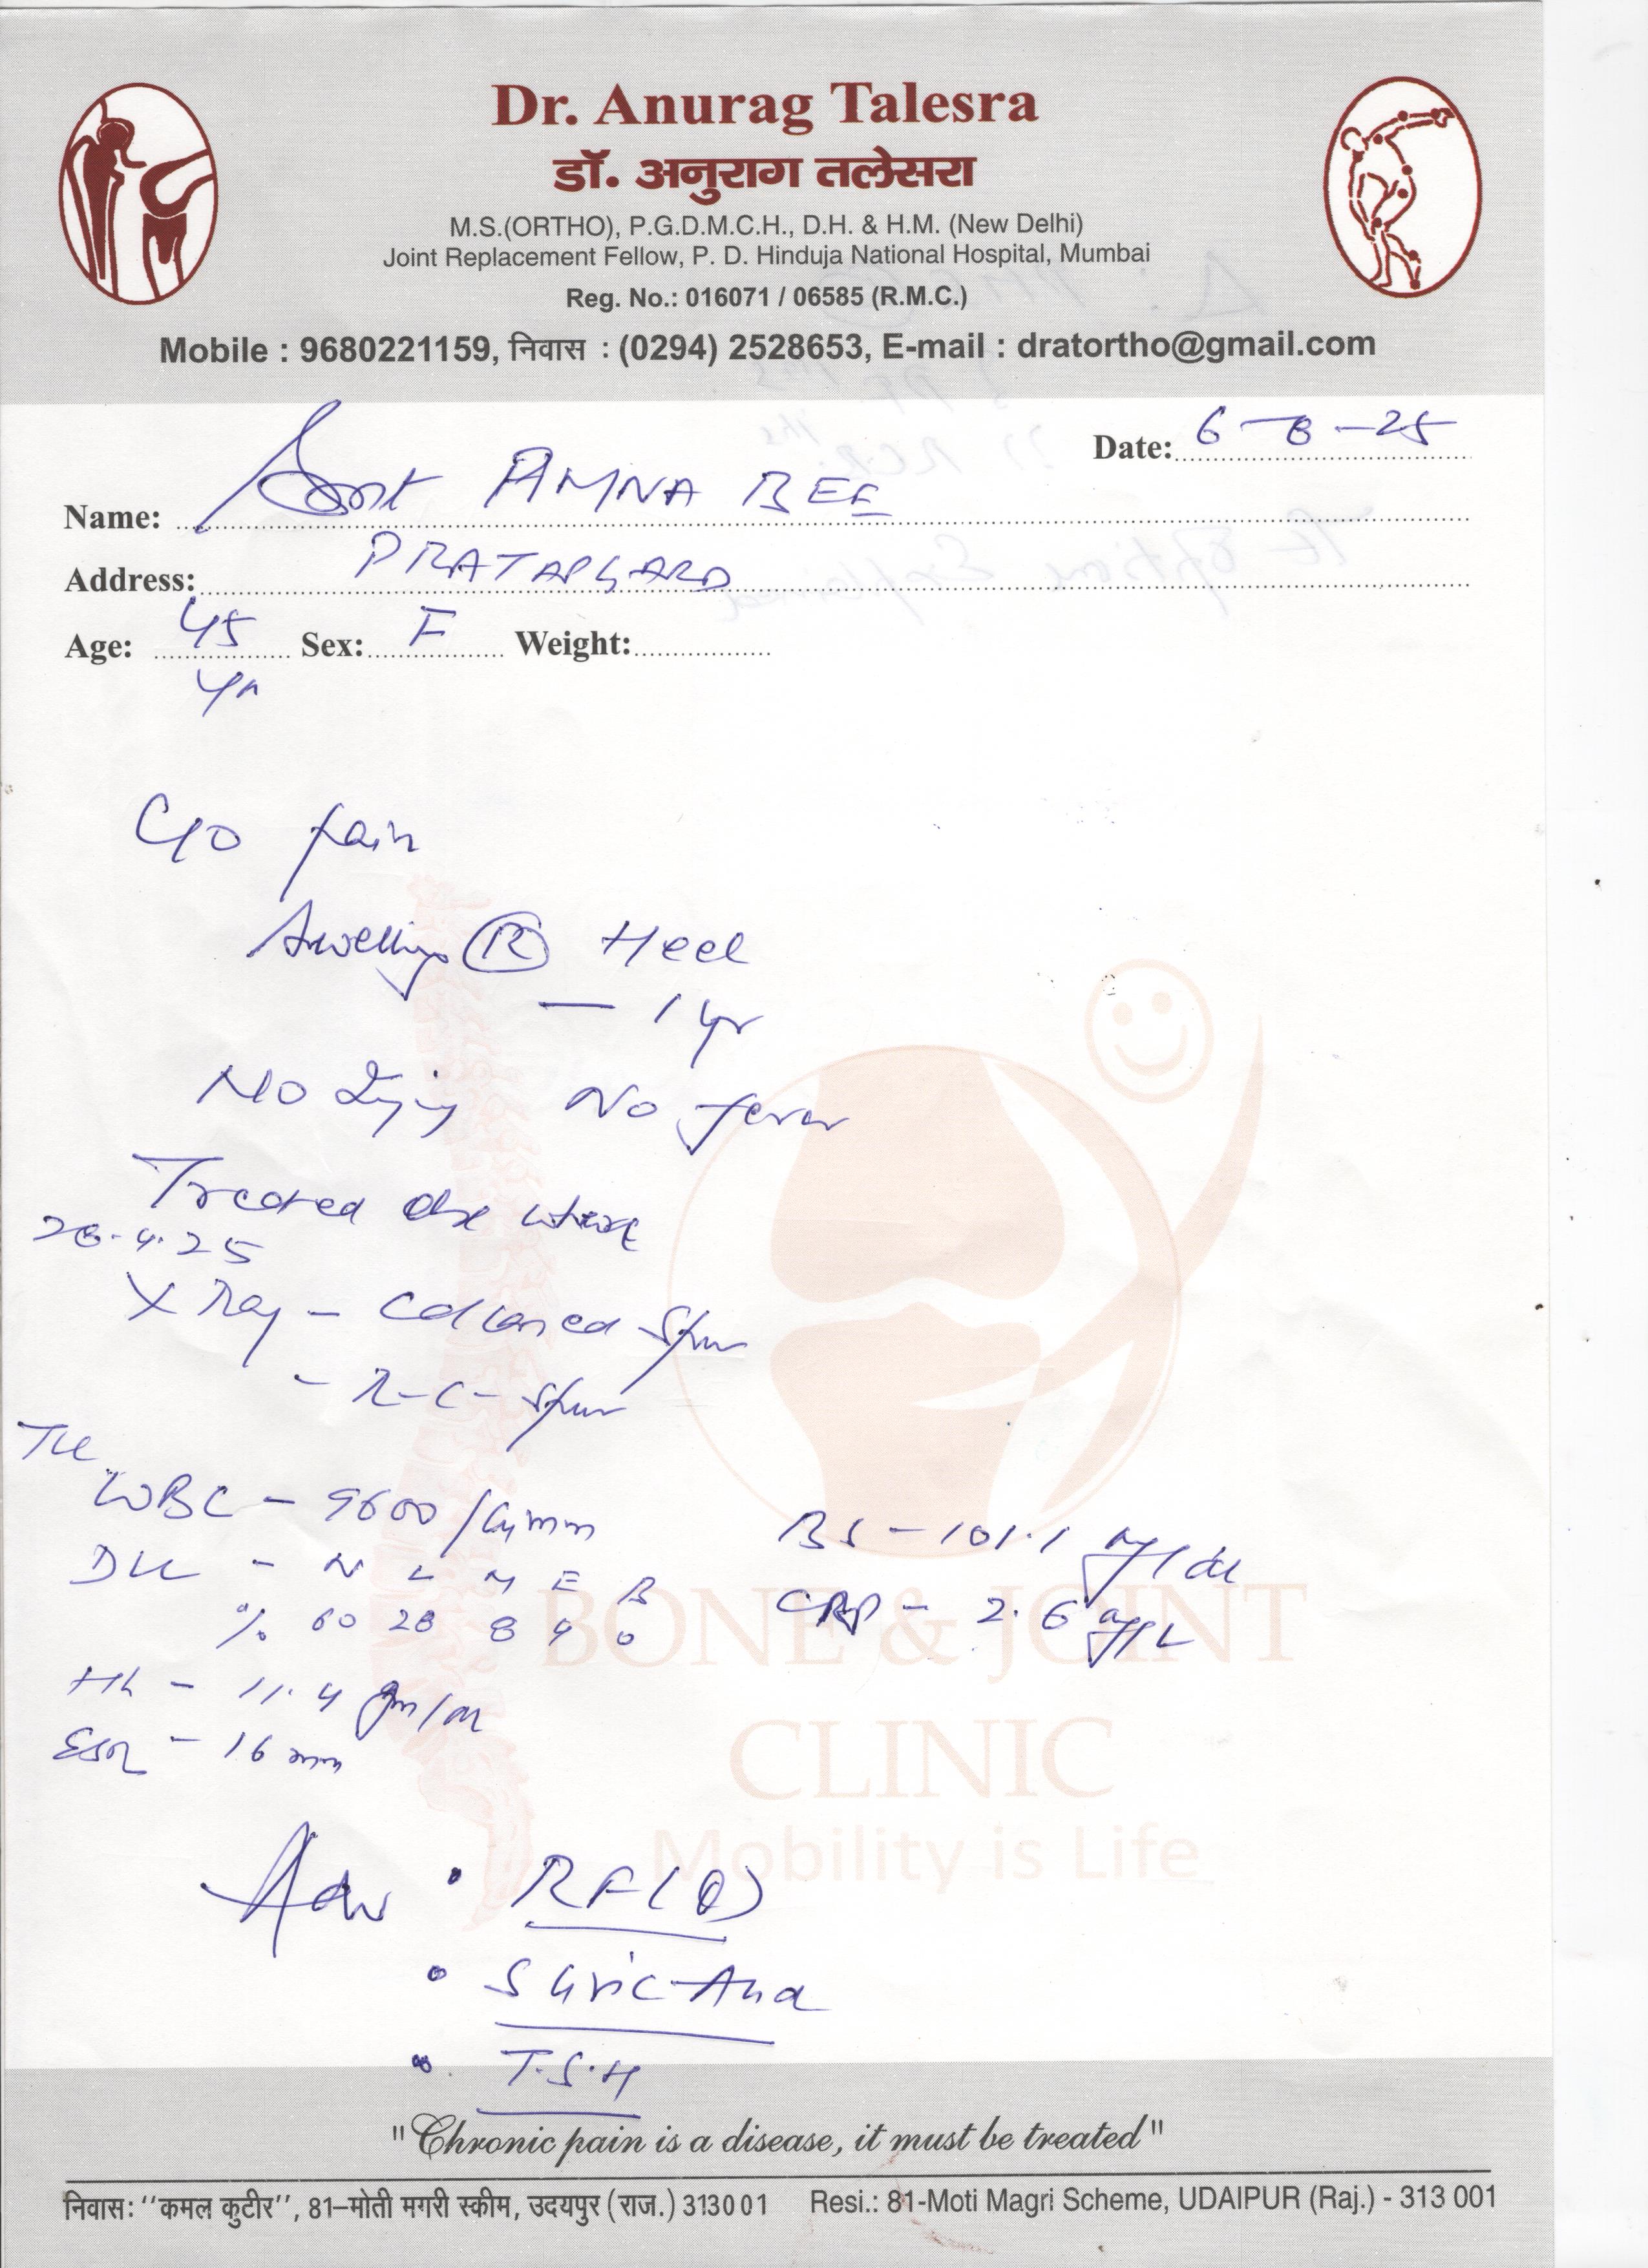 Dr. Anurag Talesra
डॉ. अनुराग तलेसरा
M.S.(ORTHO), P.G.D.M.C.H., D.H. & H.M. (New Delhi)
Joint Replacement Fellow, P. D. Hinduja National Hospital, Mumbai
Reg. No.: 016071 / 06585 (R.M.C.)
Mobile : 9680221159, निवास : (0294) 2528653, E-mail : dratortho@gmail.com
Date: 6-8-25
Name: Smt AMNA BEE
Address: PRATAPGARD
Age: 45 Sex: F Weight:
yr
C/o pain
Swelling (R) Heel
— 1 yr
No Injury No fever
Treated else where
28.4.25
X Ray - Calcaneal Spur
- R-C- Spur
TLC
WBC - 9600 /Cumm
DLC - N L M E B
% 60 28 8 4 0
BS - 101.1 mg/dl
CRP - 2.6 mg/L
Hb - 11.4 gm/dl
ESR - 16 mm
BONE & JOINT
CLINIC
Mobility is Life
Adv • RF(Q)
• S Uric Acid
• T.S.H
"Chronic pain is a disease, it must be treated"
निवास: ''कमल कुटीर'', 81–मोती मगरी स्कीम, उदयपुर (राज.) 313001 Resi.: 81-Moti Magri Scheme, UDAIPUR (Raj.) - 313 001